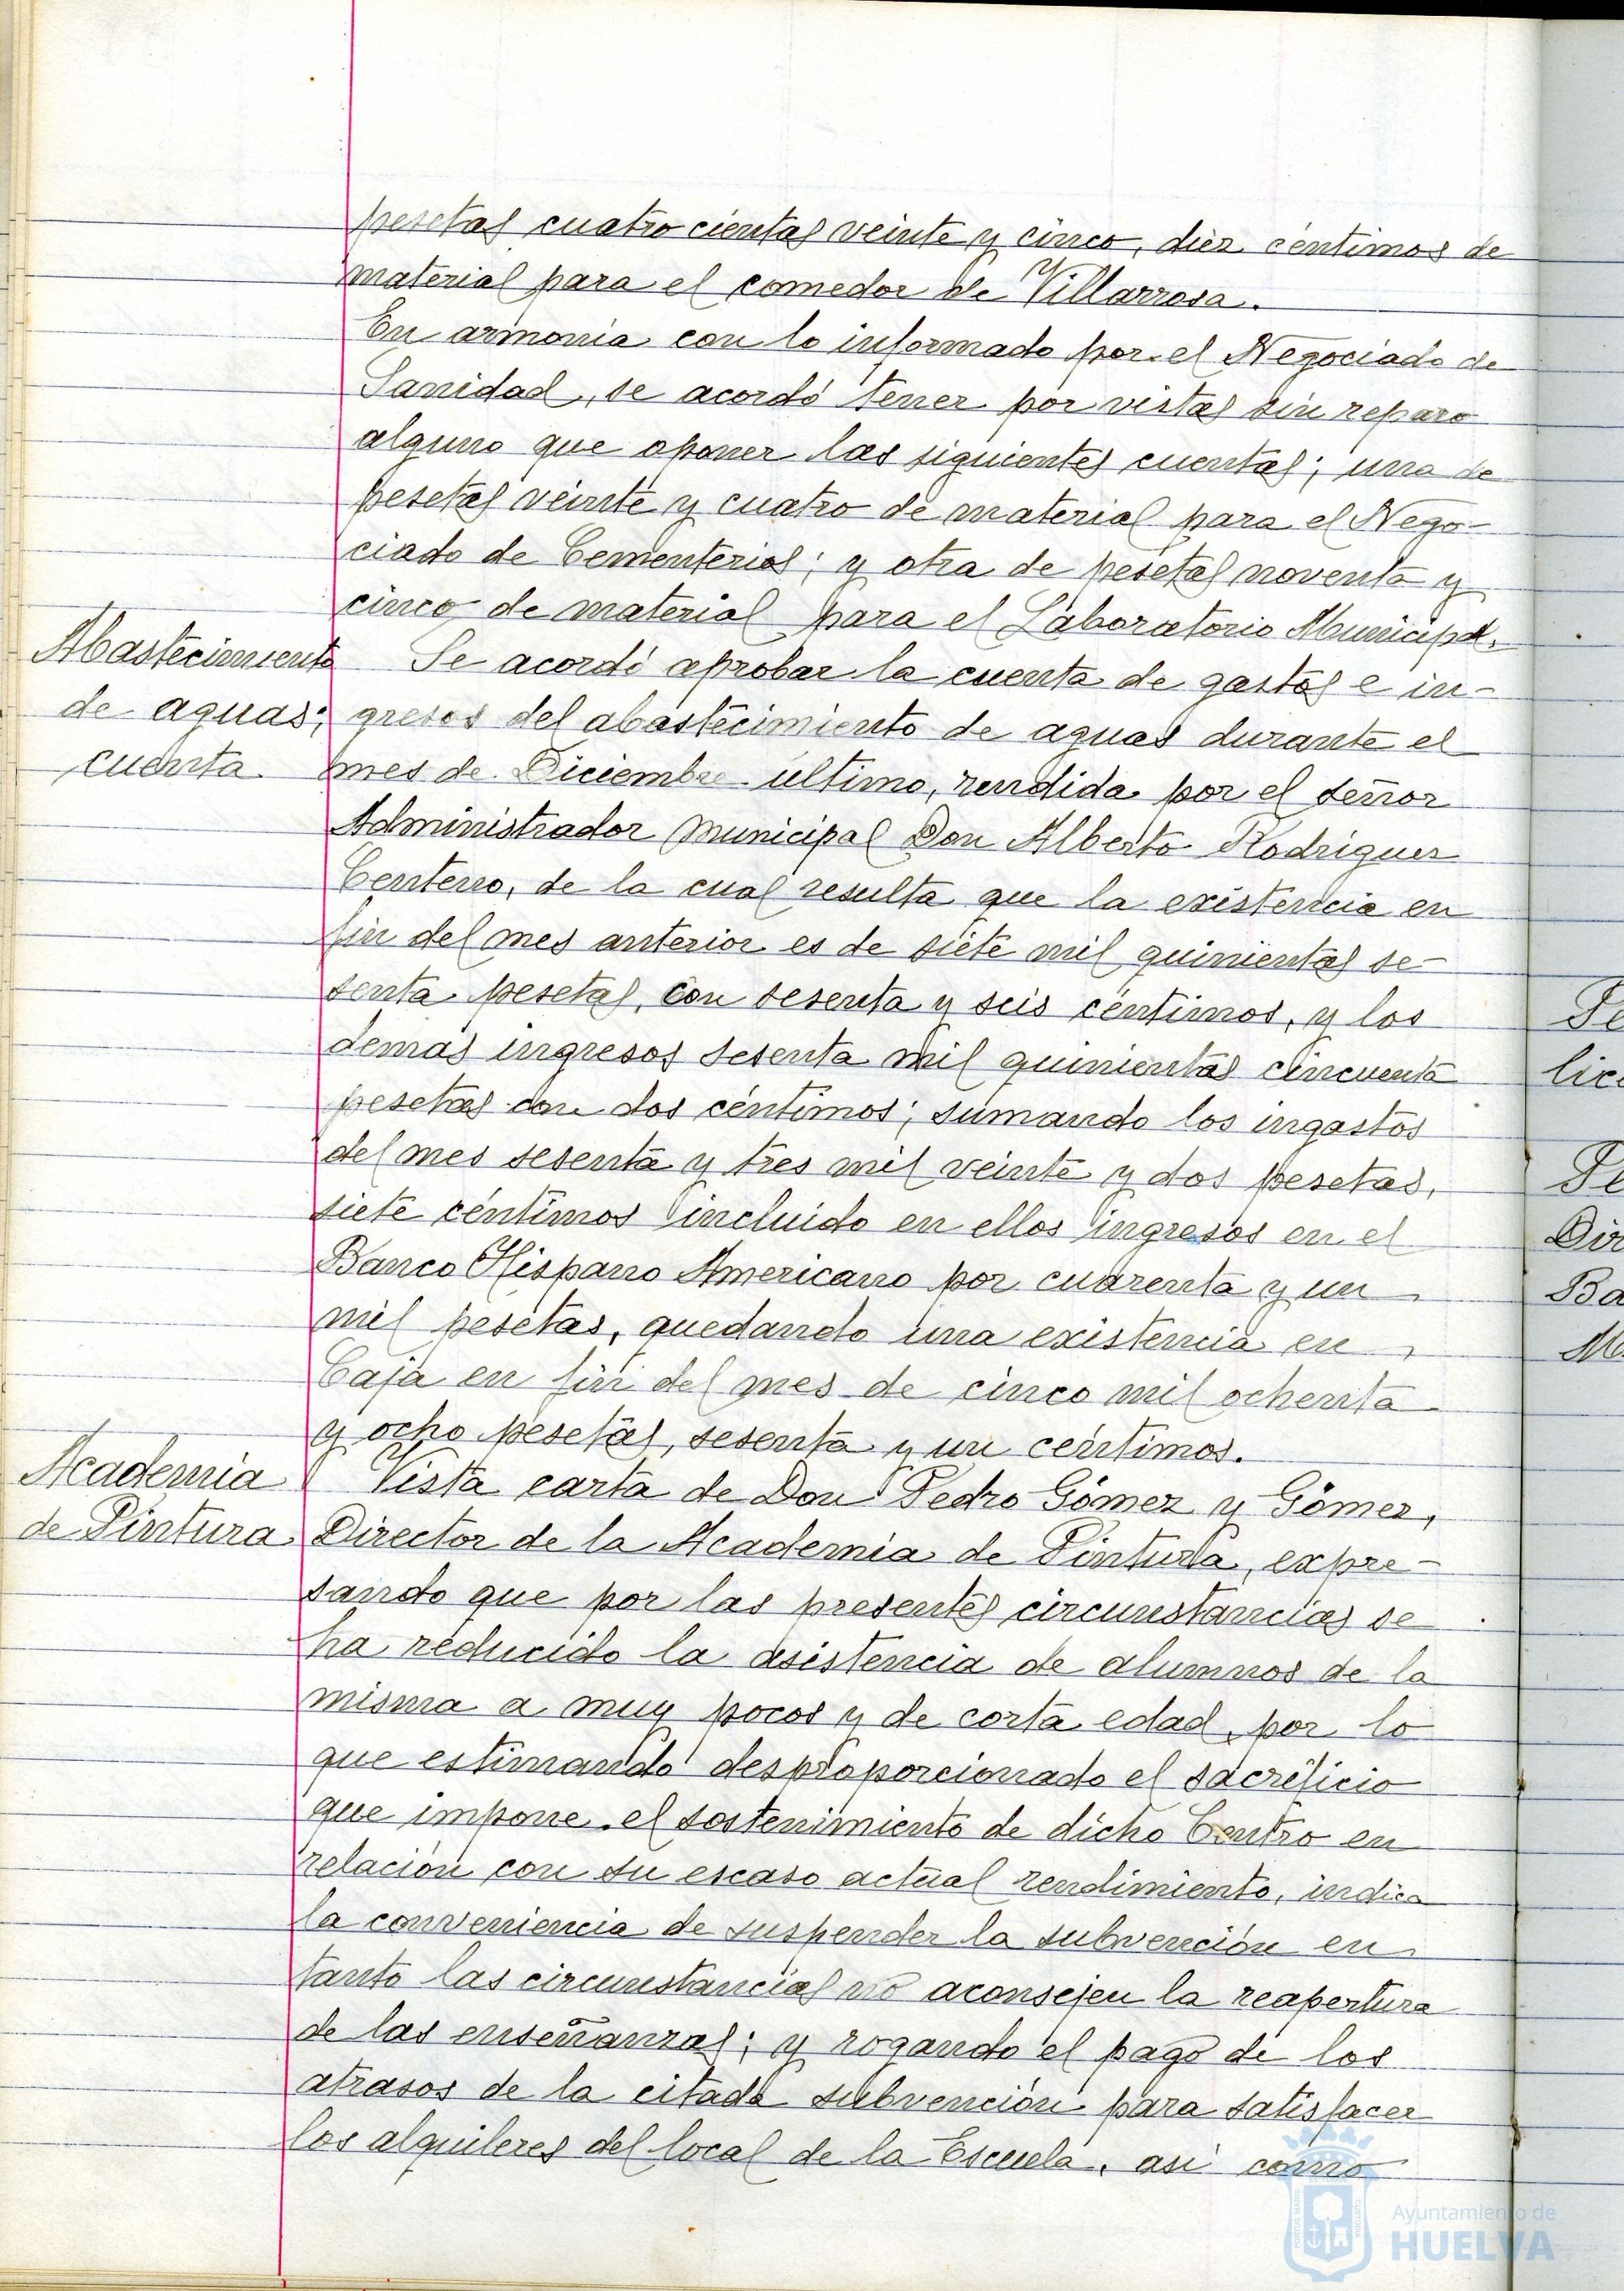 pesetas cuatro cientas veinte y cinco, diez centimos de
material para el comedor de Villarrosa.
En armonia con lo informado por el Negociado de
Sanidad, se acordó tener por vistas sin reparo
alguno que oponer las siguientes cuentas; una de
pesetas veinte y cuatro de material para el Nego-
ciado de Cementerios; y otra de pesetas noventa y
cinco de material para el Laboratorio Municipal.
Abastecimiento
de aguas;
cuenta.
Se acordó aprobar la cuenta de gastos e in-
gresos del abastecimiento de aguas durante el
mes de Diciembre último, rendida por el señor
Administrador municipal Don Alberto Rodriguez
Centeno, de la cual resulta que la existencia en
fin del mes anterior es de siete mil quinientas se-
senta pesetas, con sesenta y seis céntimos, y los
demás ingresos sesenta mil quinientas cincuenta
pesetas con dos céntimos; sumando los ingastos
del mes sesenta y tres mil veinte y dos pesetas,
siete céntimos incluido en ellos ingresos en el
Banco Hispano Americano por cuarenta y un
mil pesetas, quedando una existencia en
Caja en fin del mes de cinco mil ochenta
y ocho pesetas, sesenta y un céntimos.
Academia
de Pintura.
Vista carta de Don Pedro Gómez y Gómez,
Director de la Academia de Pintura, expre-
sando que por las presentes circunstancias se
ha reducido la asistencia de alumnos de la
misma a muy pocos y de corta edad, por lo
que estimando desproporcionado el sacrificio
que impone el sostenimiento de dicho Centro en
relación con su escaso actual rendimiento, indica
la conveniencia de suspender la subvención en
tanto las circunstancias no aconsejen la reapertura
de las enseñanzas; y rogando el pago de los
atrasos de la citada subvención para satisfacer
los alquileres del local de la Escuela, asi como
Pe
lice
Pe
Dir
Ba
Ma
Ayuntamiento de
HUELVA